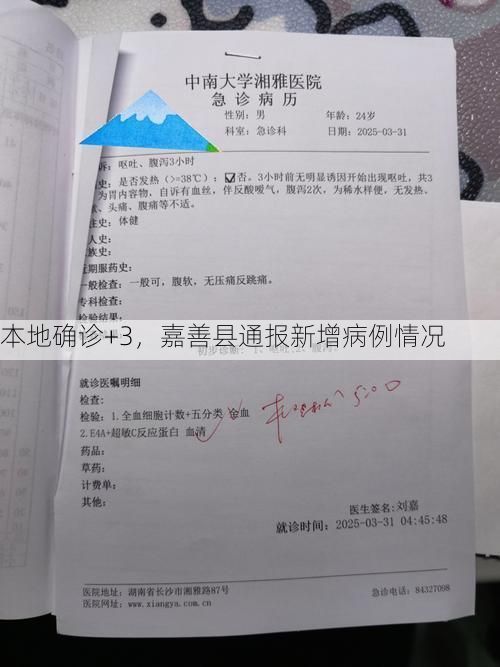 中南大学湘雅医院
急 诊 病 历
性别：男 年龄：24岁
科室：急诊科 日期：2025-03-31
诉：呕吐、腹泻3小时
史：是否发热（>=38℃）；☑否。3小时前无明显诱因开始出现呕吐，共3
为胃内容物，自诉有血丝，伴反酸嗳气，腹泻2次，为稀水样便，无发热、
、头痛、腹痛等不适。
往史：体健
人史：
族史：
近期服药史：
一般检查：一般可，腹软，无压痛反跳痛。
专科检查：
检验结果：
本地确诊+3，嘉善县通报新增病例情况
就诊医嘱明细
检查：
检验：1.全血细胞计数+五分类 全血
2.E4A+超敏C反应蛋白 血清
药品：
草药：
计费单：
其他：
医生签名：刘嘉
就诊时间：2025-03-31 04:45:48
医院地址：湖南省长沙市湘雅路87号 急诊电话：84327098
医院网址：www.xiangya.com.cn